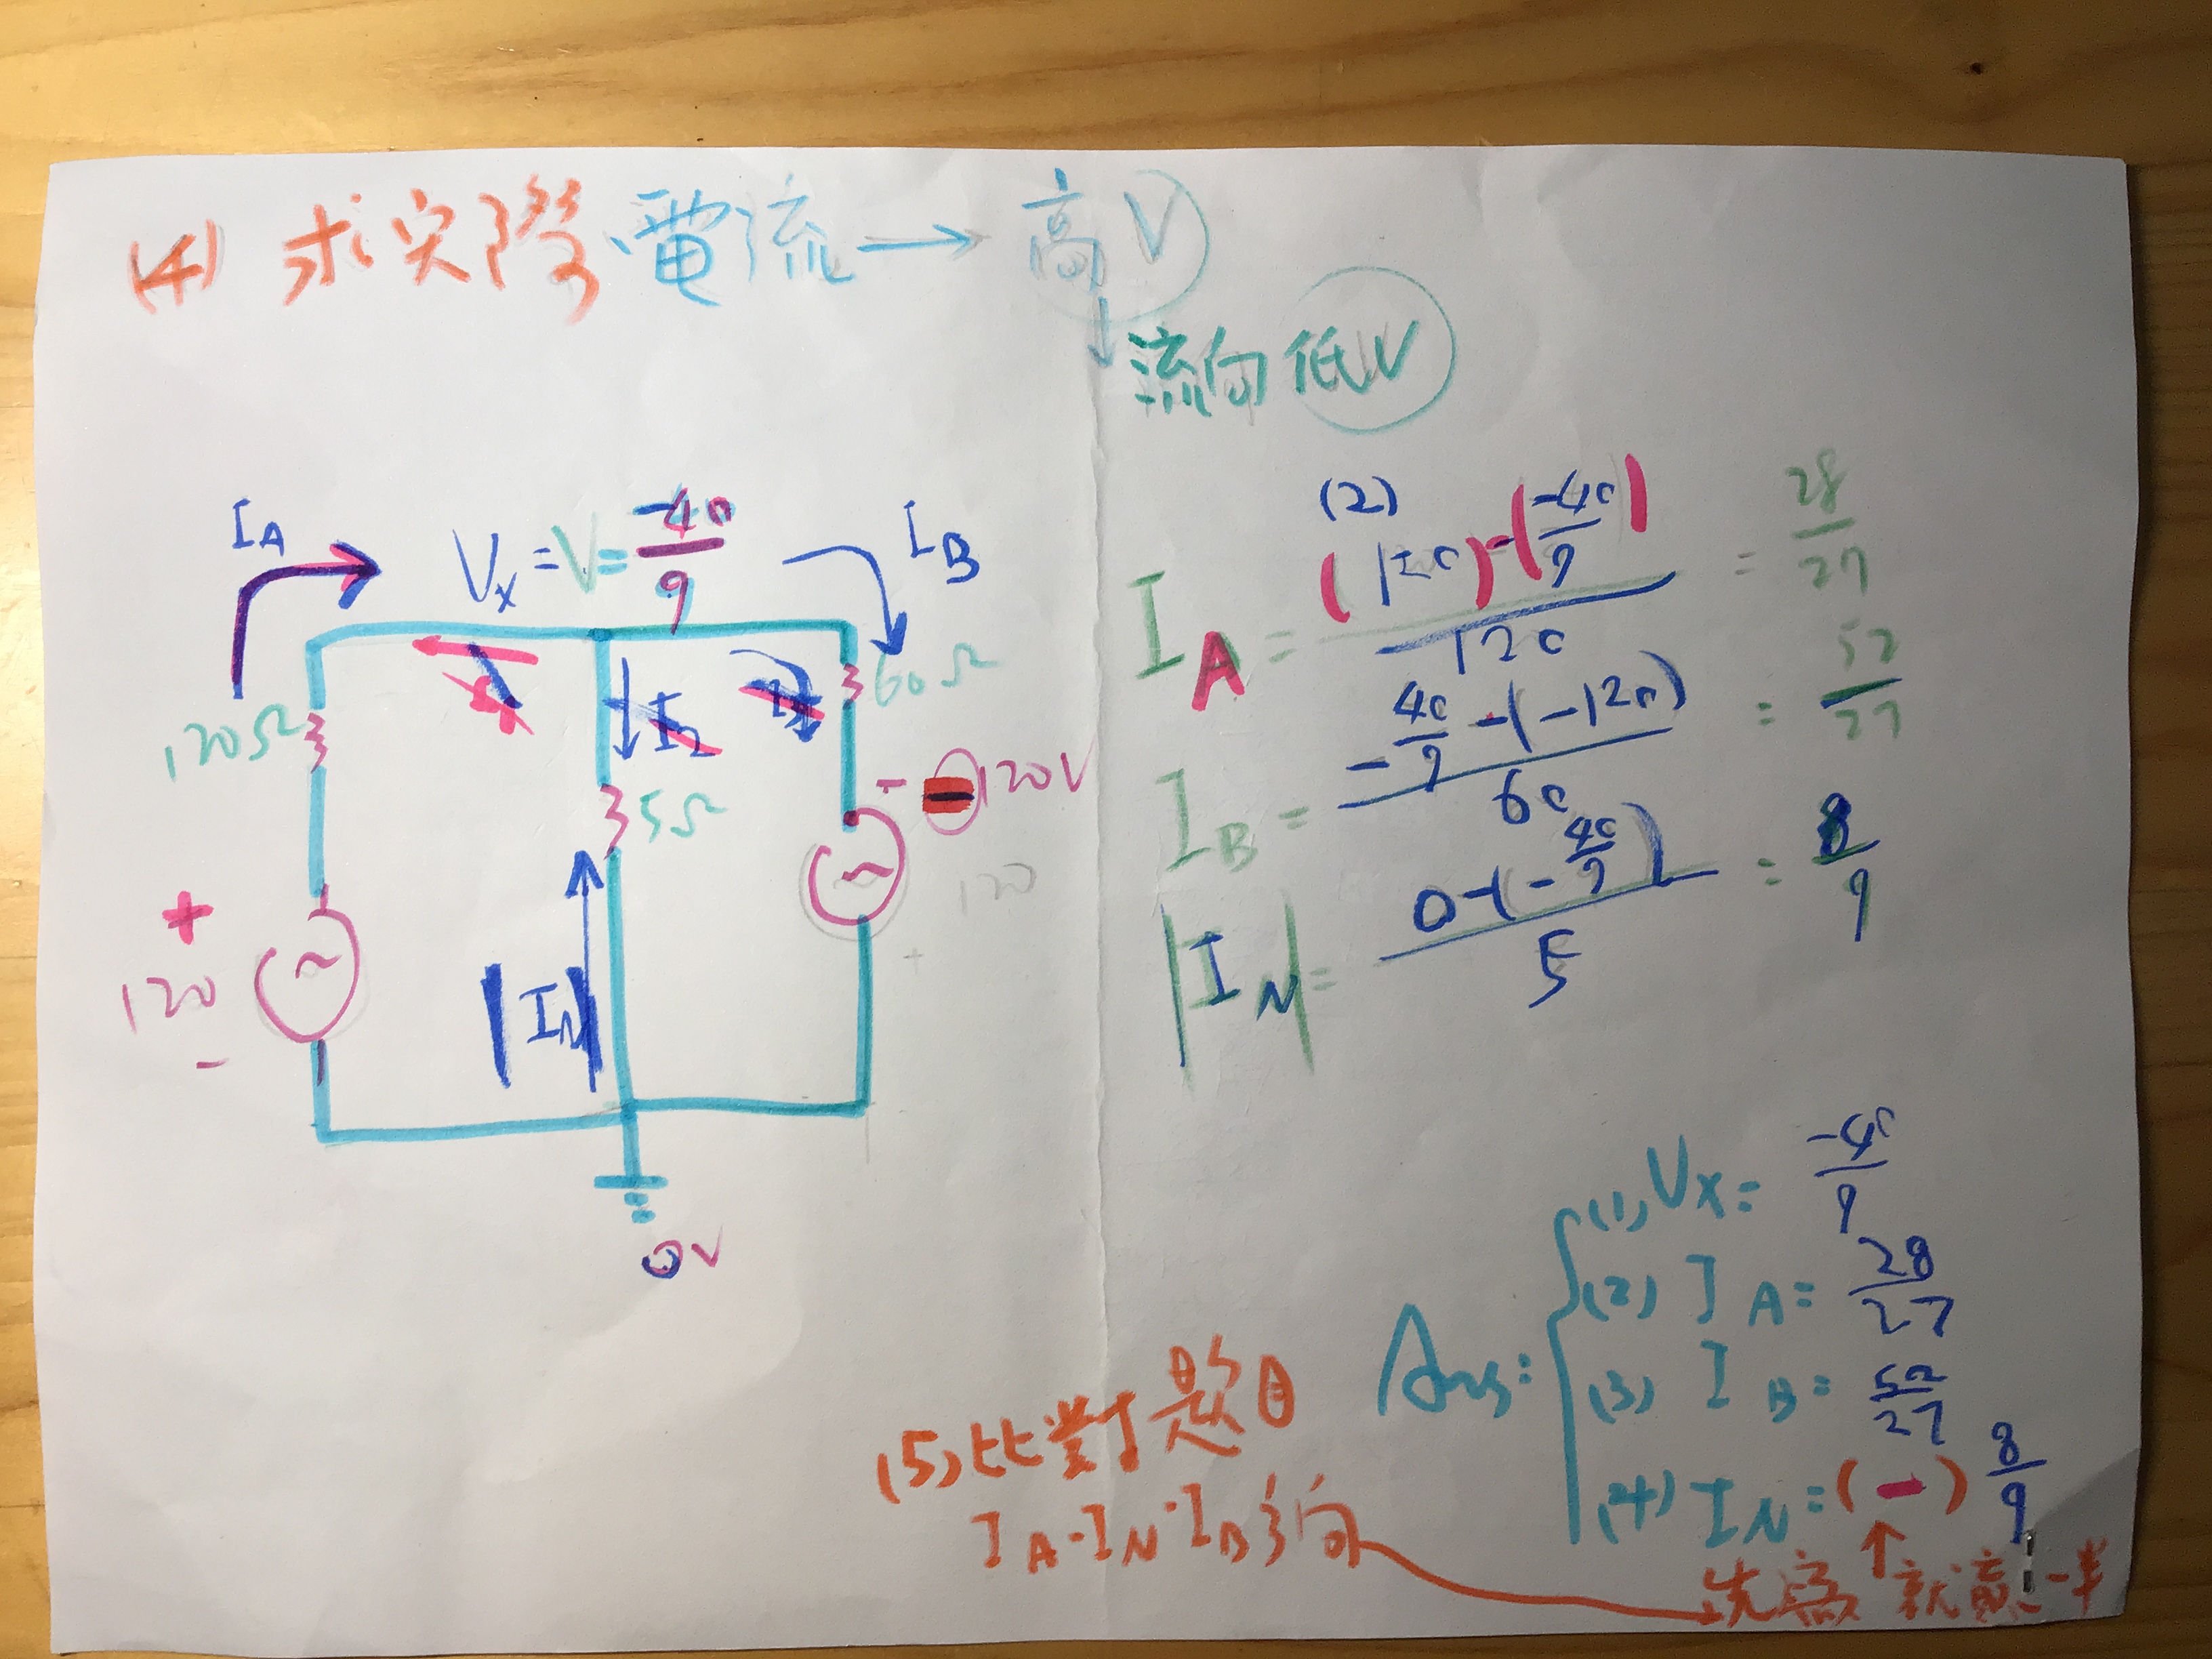 (4) 求实際電流→高V
↓流向低V
IA
Vx=V=-40/9
IB
120Ω
I2
60Ω
5Ω
- -120V
120
+
120
-
|IN|
0V
(2)
IA=(120)-(-40/9)/120=28/27
IB=-40/9-(-120)/60=52/27
|IN|=0-(-40/9)/5=8/9
Ans:
(1) Vx=-40/9
(2) IA=28/27
(3) IB=52/27
(4) IN=(-)8/9
(5)比對題目
IA.IN.IB方向
先寫↑就贏一半